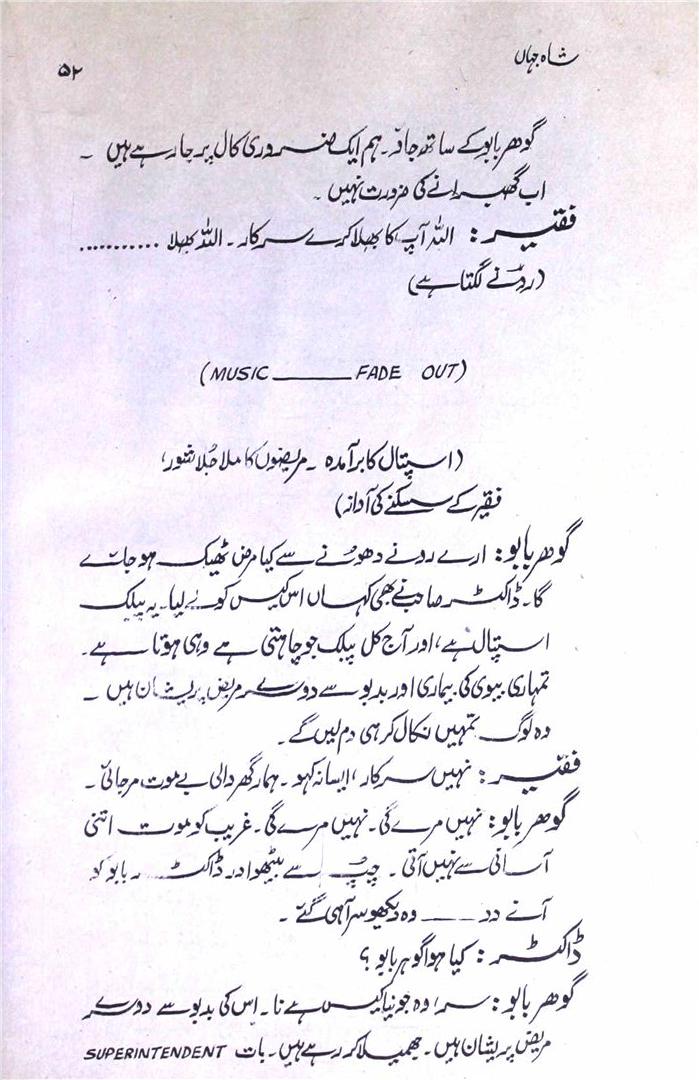 شاہ جہاں
۵۲
گوھر بابو کے ساتھ جاؤ۔ ہم ایک ضروری کال پر جا رہے ہیں ۔
اب گھبرانے کی ضرورت نہیں ۔
فقیر : اللہ آپ کا بھلا کرے سرکار ۔ اللہ بھلا ...........
(رونے لگتا ہے)
(MUSIC ______ FADE OUT)
(اسپتال کا برآمدہ ۔ مریضوں کا ملا جلا شور،
فقیر کے سسکنے کی آواز)
گوھر بابو : ارے رونے دھونے سے کیا مرض ٹھیک ہو جائے
گا۔ ڈاکٹر صاحب نے بھی کہاں اس کیس کو لے لیا۔ یہ پبلک
اسپتال ہے، اور آج کل پبلک جو چاہتی ہے وہی ہوتا ہے۔
تمہاری بیوی کی بیماری اور بدبو سے دوسرے مریض پریشان ہیں ۔
وہ لوگ تمہیں نکال کر ہی دم لیں گے ۔
فقیر : نہیں سرکار، ایسا نہ کہو ۔ ہمار گھر والی بے موت مر جائی ۔
گوھر بابو : نہیں مرے گی ۔ نہیں مرے گی ۔ غریب کو موت اتنی
آسانی سے نہیں آتی ۔ چپ سے بیٹھو اور ڈاکٹر بابو کو
آنے دو ___ وہ دیکھو سر آ ہی گئے ۔
ڈاکٹر : کیا ہوا گوہر بابو ؟
گوھر بابو : سر، وہ جو نیا کیس ہے نا۔ اس کی بدبو سے دوسرے
مریض پریشان ہیں ۔ جھمیلا کر رہے ہیں ۔ بات SUPERINTENDENT